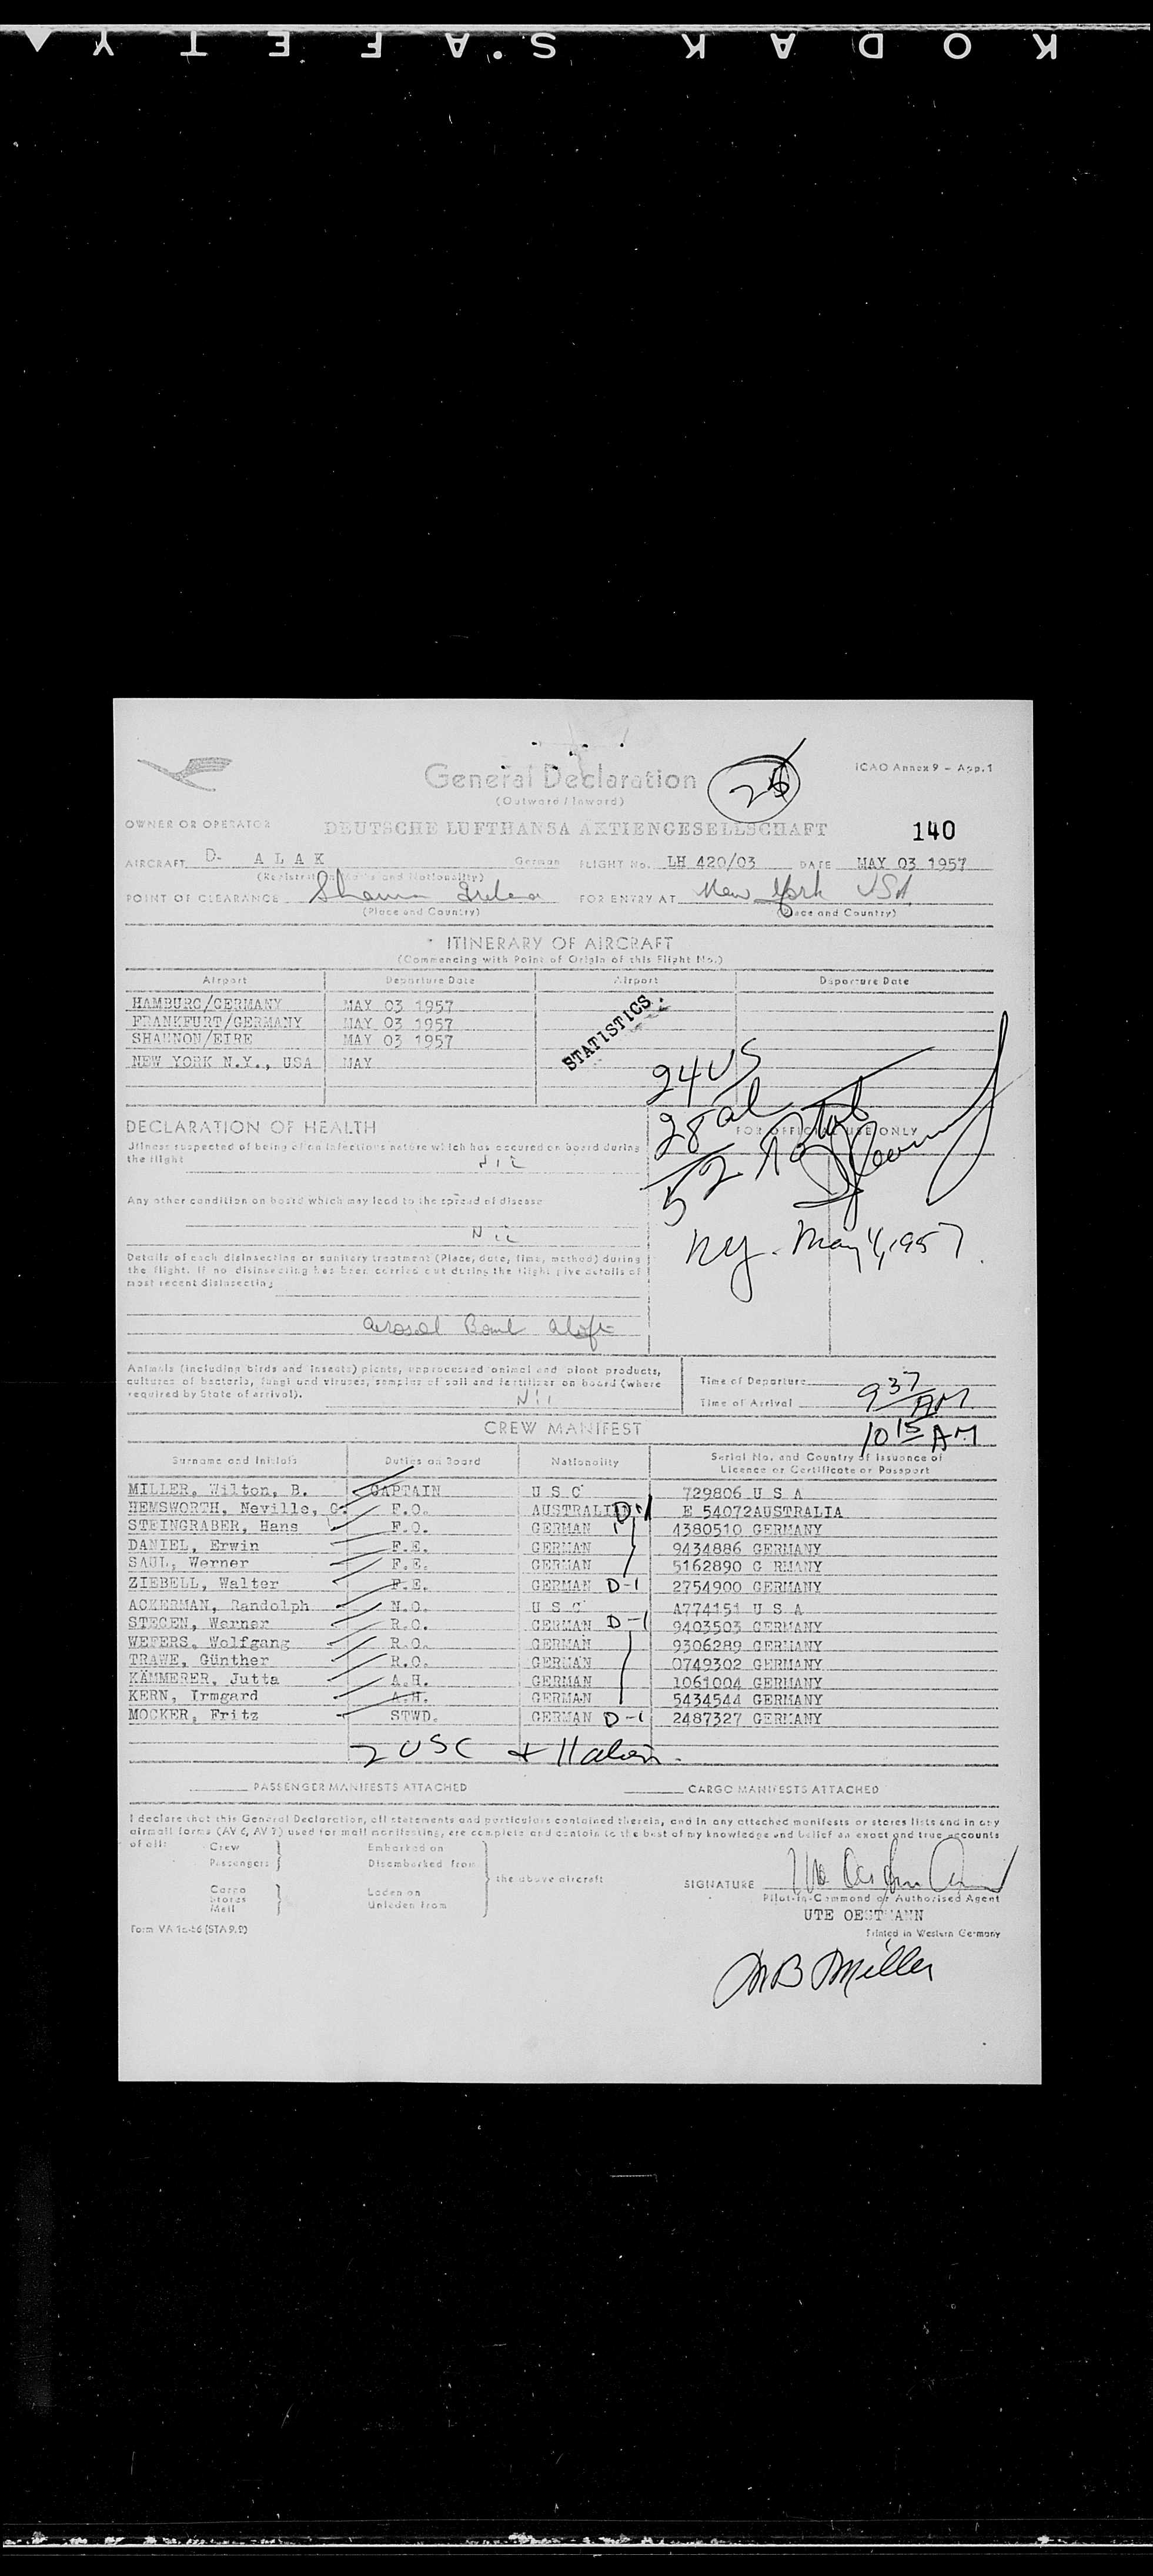 KODAK S.A F E T Y
ICAO Annex 9 – App. 1
General Declaration
(Outward / Inward)
OWNER OR OPERATOR DEUTSCHE LUFTHANSA AKTIENGESELLSCHAFT 140
AIRCRAFT D- A L A K German FLIGHT No. LH 420/03 DATE MAY 03 1957
(Registration Marks and Nationality)
POINT OF CLEARANCE FOR ENTRY AT New York USA
(Place and Country) (Place and Country)
ITINERARY OF AIRCRAFT
(Commencing with Point of Origin of this Flight No.)
Airport Departure Date Airport Departure Date
HAMBURG/GERMANY MAY 03 1957
FRANKFURT/GERMANY MAY 03 1957
SHANNON/EIRE MAY 03 1957
NEW YORK N.Y., USA MAY
STATISTICS.
24 US
28 al
52
DECLARATION OF HEALTH
FOR OFFICIAL USE ONLY
Illness suspected of being of an infectious nature which has occured on board during
the flight Nil
Any other condition on board which may lead to the spread of disease
Nil
NY. May 4, 1957.
Details of each disinsecting or sanitary treatment (Place, date, time, method) during
the flight. If no disinsecting has been carried out during the flight give details of
most recent disinsecting
Aerosol Bomb aloft
Animals (including birds and insects) plants, unprocessed animal and plant products,
cultures of bacteria, fungi and viruses, samples of soil and fertilizer on board (where
required by State of arrival). Nil
Time of Departure
Time of Arrival 9 37 AM
10 15 AM
CREW MANIFEST
Surname and Initials Duties on Board Nationality Serial No. and Country of Issuance of
Licence or Certificate or Passport
MILLER, Wilton, B. CAPTAIN U S C 729806 U S A
HEMSWORTH, Neville, G. F.O. AUSTRALI D-1 E 54072AUSTRALIA
STEINGRABER, Hans F.O. GERMAN 4380510 GERMANY
DANIEL, Erwin F.E. GERMAN 9434886 GERMANY
SAUL, Werner F.E. GERMAN 5162890 G RMANY
ZIEBELL, Walter F.E. GERMAN D-1 2754900 GERMANY
ACKERMAN, Randolph N.O. U S C A774151 U S A
STEGEN, Werner R.O. GERMAN D-1 9403503 GERMANY
WEFERS, Wolfgang R.O. GERMAN 9306289 GERMANY
TRAWE, Günther R.O. GERMAN 0749302 GERMANY
KÄMMERER, Jutta A.H. GERMAN 1061004 GERMANY
KERN, Irmgard A.H. GERMAN 5434544 GERMANY
MOCKER, Fritz STWD. GERMAN D-1 2487327 GERMANY
2 USC + 11 alien
PASSENGER MANIFESTS ATTACHED CARGO MANIFESTS ATTACHED
I declare that this General Declaration, all statements and particulars contained therein, and in any attached manifests or stores lists and in any
airmail forms (AV 6, AV 7) used for mail manifesting, are complete and contain to the best of my knowledge and belief an exact and true accounts
of all: Crew Embarked on
Passengers Disembarked from
the above aircraft
Cargo Laden on
Stores
Mail Unladen from
SIGNATURE
Pilot-in-Command or Authorised Agent
UTE OESTMANN
Form VA 1a-56 (STA 9.9) Printed in Western Germany
WB Miller